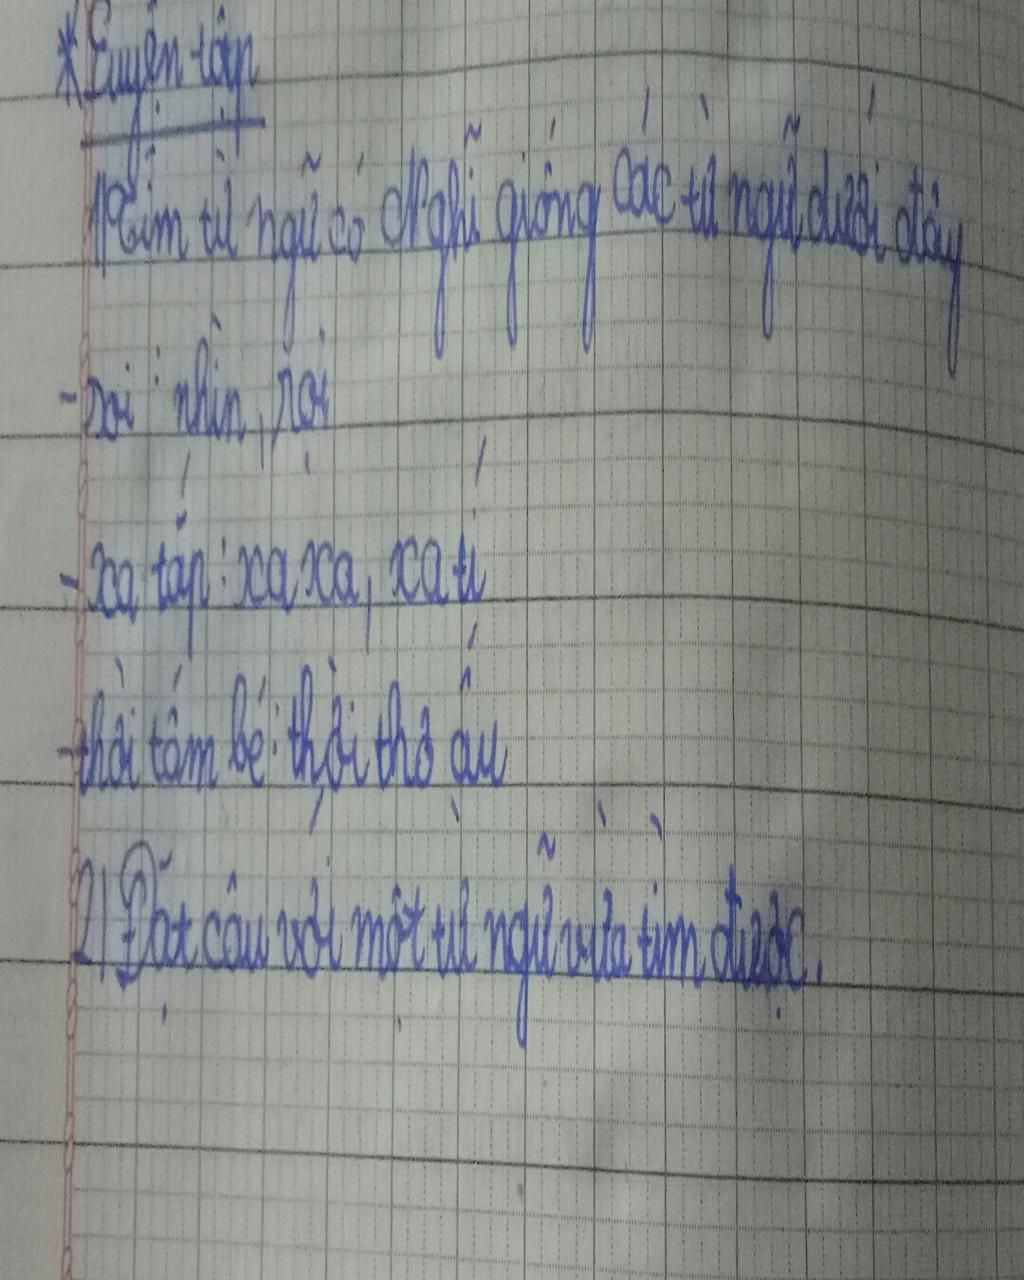 * Luyện tập
1/ Tìm từ ngữ có nghĩ giống các từ ngữ dưới đây
- soi : nhìn, rọi
- xa tắp : xa xa, xa tí
- thời tấm bé : thời thơ ấu
2/ Đặt câu với một từ ngữ vừa tìm được.